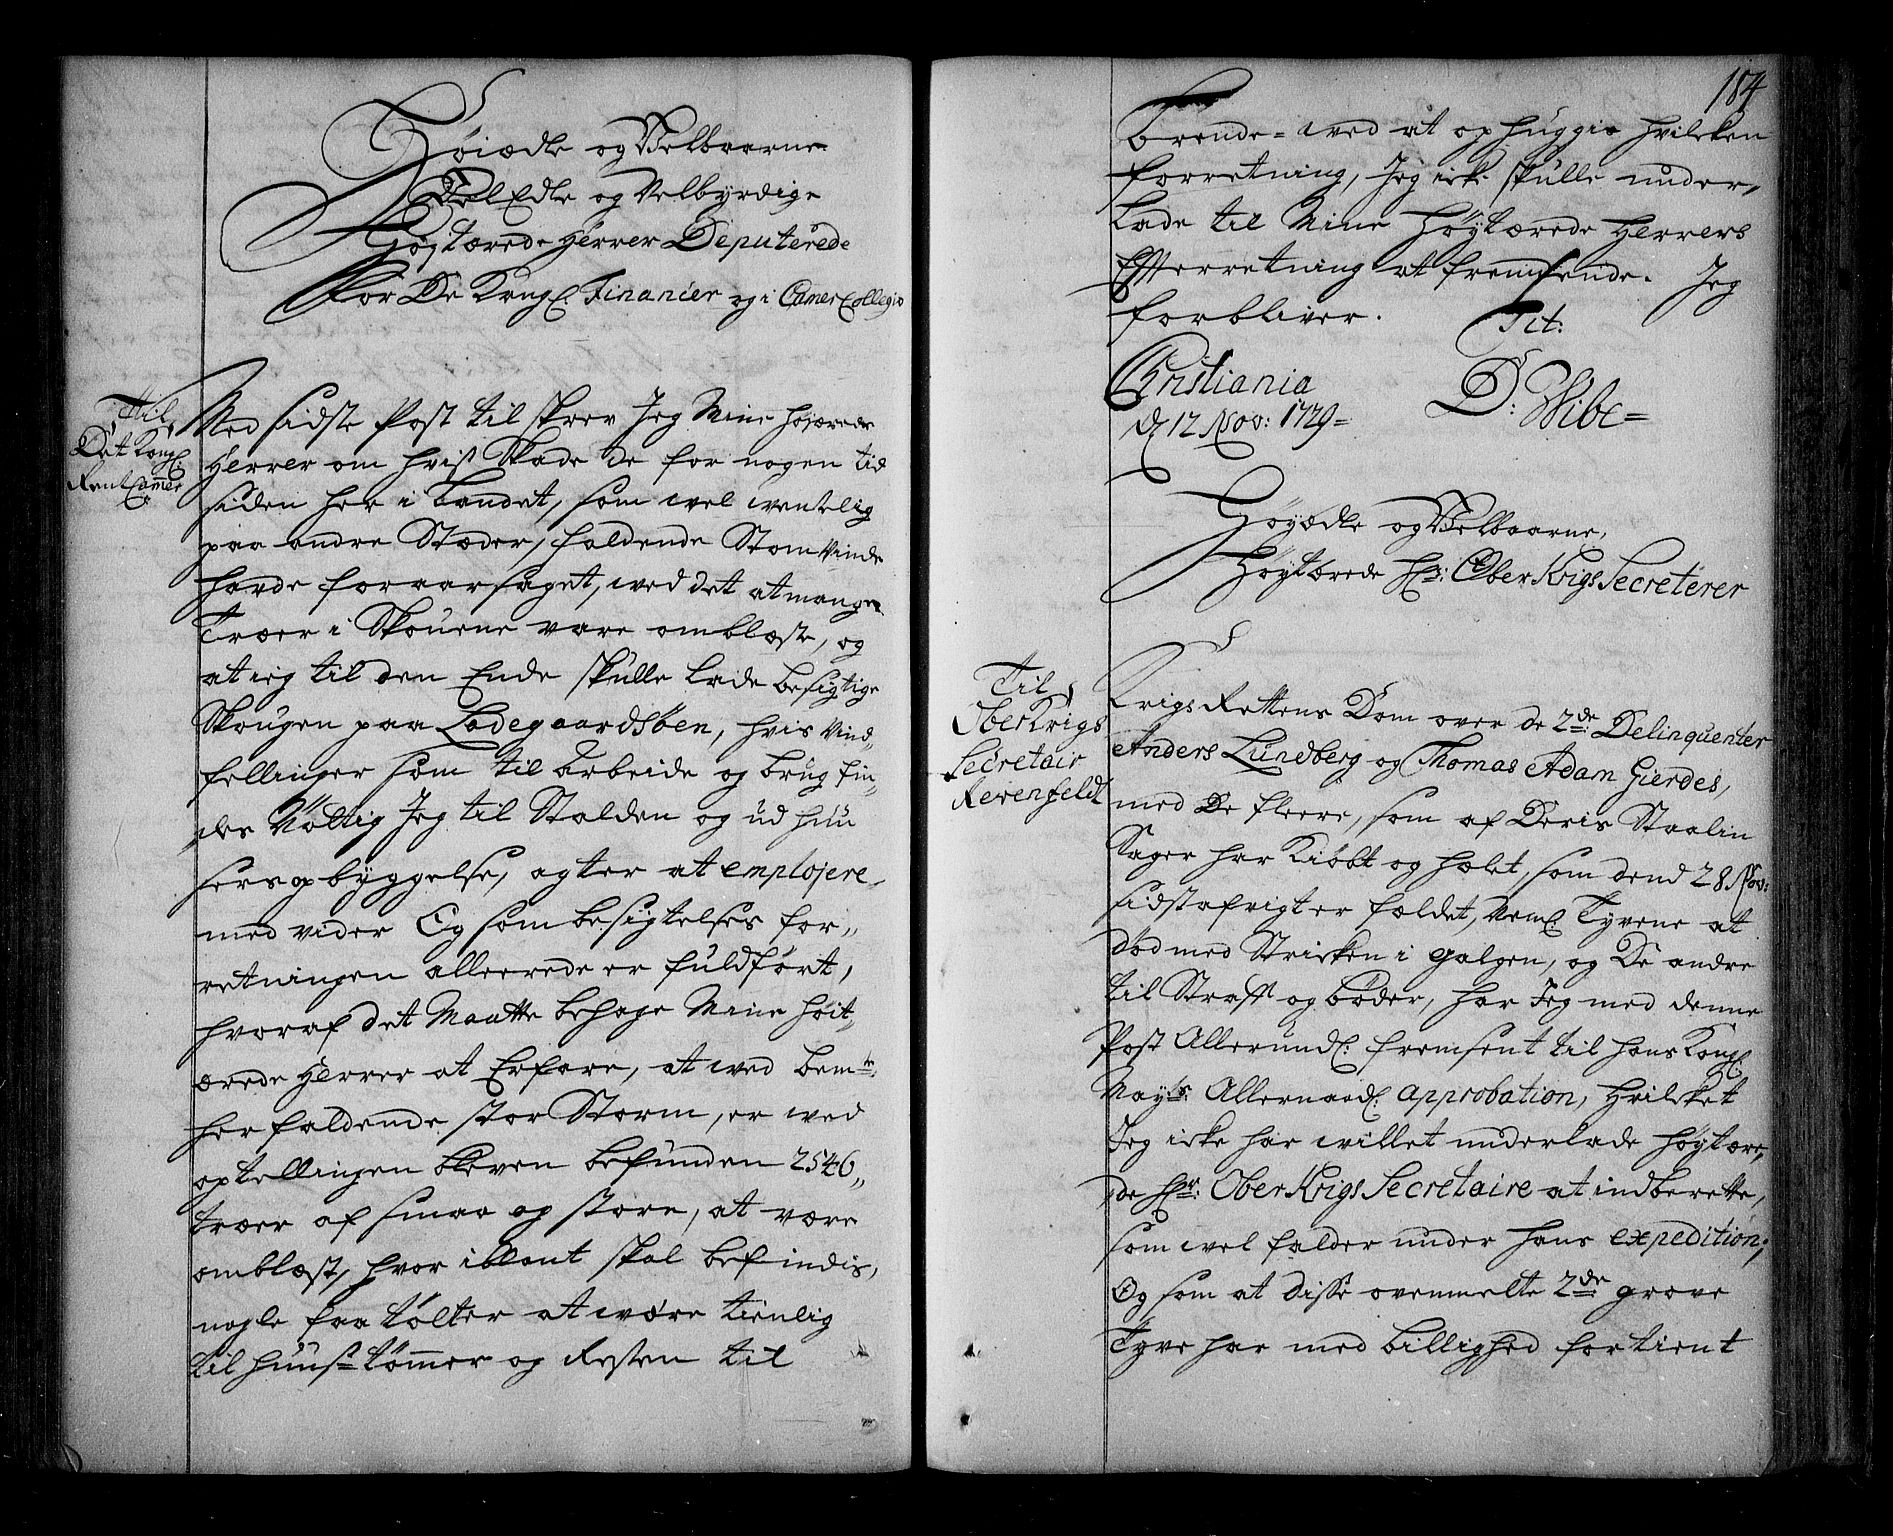 Høiædle og Velbaarne
VelEdle og Velbyrdige
Høgtærede Herrer Deputerede
for De Kongl. Financier og i CamerCollegio
Til
Det Kongl:
RentCammer
Med sidste Post til skrev Jeg Mine høiærede
Herrer om hvis Skade de for nogen tid
siden her i Landet, som wel wentelig
paa andre Stæder, faldende StormVinde
hafde foraarsaget, wed det at mange
Træer i Skouene vare omblæste, og
at ieg til den Ende skulle lade besigtige
Skougen paa Ladegaardsøen, hvis Vind„
fellinger som til Arbeide og brug fin„
des Nøttig Jeg til Stalden og ud huu
sers opbyggelse, agter at emplojere
med vider Og som besigtelses for„
retningen alleerede er fuldført,
hvoraf det Maatte behage Mine høit„
ærede Herrer at Erfare, at wed bemte:
her faldende stor Storm, er wed
optellingen bleven befunden 2546„
træer af smaa og store, at være
omblæst, hvor iblant skal befindis,
nogle faa tølter at wære tienlig
til huus tømmer og Resten til
184
Brende= wed at ophuggis hvilcken
forretning, Jeg icke skulle under„
lade til Mine Høytærede Herrers
Efterretning at fremsende. Jeg
forbliver.
Tit:
Christiania
d 12 Nov: 1729=
D: Wibe=
Høyædle og Velbaarne,
Høytærede Hr: Ober Krigs Secreterer
Til
OberKrigs
Secretair
Revenfeldt
Krigs Rettens Dom over de 2de: Delinquenter
Anders Lundberg og Thomas Adam Gierdes,
med De fleere, som af Deris Staalin
Sager har Kiøbt og hælet, som dend 28 Nov:
sidstafvigt er faldet, Neml. Tyvene at
død med Stricken i galgen, og De andre
til Straff og bøder, har Jeg med denne
Post Allerund: fremsent til hans Kongl:
Mayts: Allernaad: approbation, Hvilcket
Jeg icke har willet underlade høytære„
de Hr: OberKrigs Secretaire at indberette,
som wel falder under hans expedition;
Og som at disse ovenmelte 2de grove
Tyve har med billighed fortient